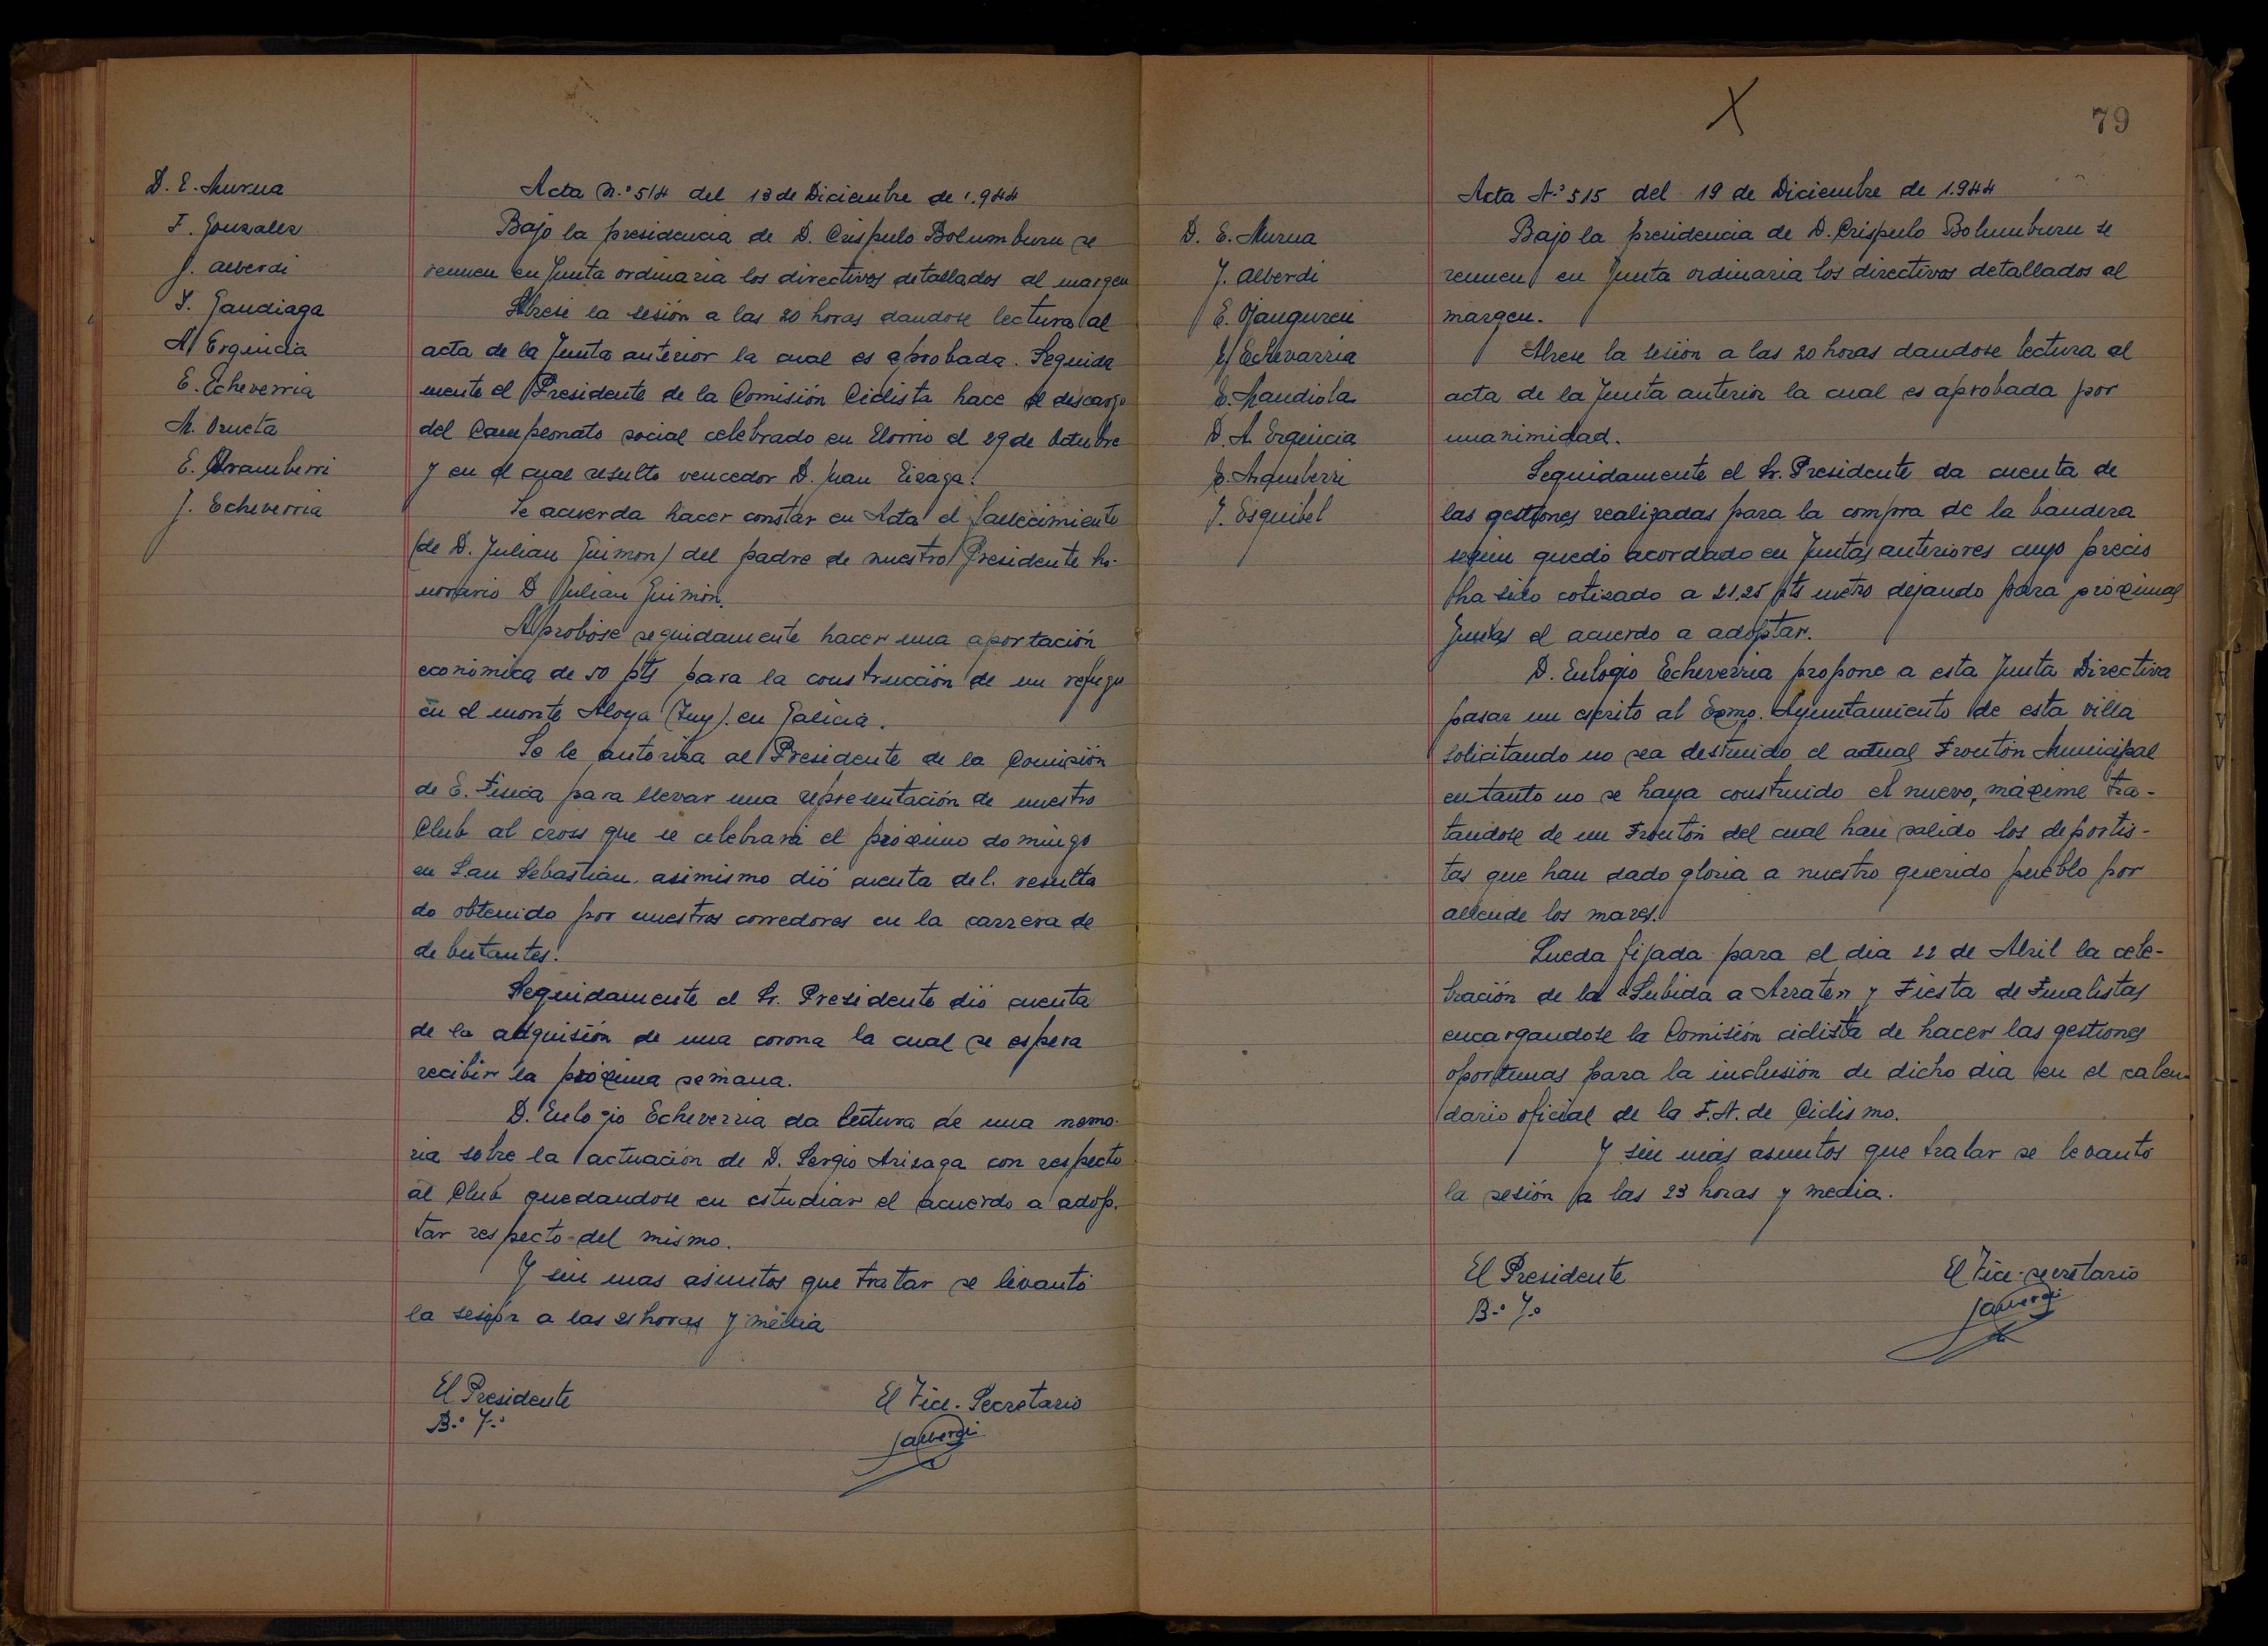 D. E. Murua
F. Gonzalez
J. Alberdi
T. Gandiaga
M. Erguicia
E. Echeverria
M. Orueta
E. Aramberri
J. Echeverria
Acta N.º 514 del 13 de Diciembre de 1.944
Bajo la presidencia de D. Crispulo Bolumburu se
reunen en Junta ordinaria los directivos detallados al margen
Abrese la sesión a las 20 horas dandose lectura al
acta de la Junta anterior la cual es aprobada. Seguida
mente el Presidente de la Comisión Ciclista hace el descargo
del Campeonato social celebrado en Elorrio el 29 de Octubre
y en el cual resulto vencedor D. Juan Lizaga.
Se acuerda hacer constar en Acta el fallecimiento
(de D. Julian Guimon) del padre de nuestro Presidente ho-
norario D Julian Guimón.
Aprobóse seguidamente hacer una aportación
económica de 50 pts para la construcción de un refugio
en el monte Aloya (Tuy) en Galicia.
Se le autoriza al Presidente de la Comisión
de E. Fisica para llevar una representación de nuestro
Club al cross que se celebrará el próximo domingo
en San Sebastián. asimismo dió cuenta del resulta
do obtenido por nuestros corredores en la carrera de
debutantes.
Seguidamente el Sr. Presidente dió cuenta
de la adquisión de una corona la cual se espera
recibir la próxima semana.
D. Eulogio Echeverria da lectura de una memo-
ria sobre la actuación de D. Sergio Arizaga con respecto
al Club quedandose en estudiar el acuerdo a adop-
tar respecto del mismo.
Y sin mas asuntos que tratar se levantó
la sesión a las 21 horas y media
El Presidente
B.º V.º
El Vice-Secretario
JAlberdi
79
D. E. Murua
J. Alberdi
E. Ojanguren
E. Echevarria
E. Mandiola
D. M. Erguicia
E. Aramberri
J. Esquibel
Acta N.º 515 del 19 de Diciembre de 1.944
Bajo la presidencia de D. Crispulo Bolumburu se
reunen en Junta ordinaria los directivos detallados al
margen.
Abrese la sesión a las 20 horas dandose lectura al
acta de la Junta anterior la cual es aprobada por
unanimidad.
Seguidamente el Sr. Presidente da cuenta de
las gestiones realizadas para la compra de la bandera
según quedó acordado en Juntas anteriores cuyo precio
ha sido cotizado a 21,25 pts metro dejando para próximas
Juntas el acuerdo a adoptar.
D. Eulogio Echeverria propone a esta Junta Directiva
pasar un escrito al Excmo. Ayuntamiento de esta villa
solicitando no sea destruido el actual Frontón Municipal
en tanto no se haya construido el nuevo, máxime tra-
tandose de un Frontón del cual han salido los deportis-
tas que han dado gloria a nuestro querido pueblo por
allende los mares.
Queda fijada para el dia 22 de Abril la cele-
bración de la "Subida a Arrate" y Fiesta de Finalistas
encargandose la Comisión ciclista de hacer las gestiones
oportunas para la inclusión de dicho dia en el calen-
dario oficial de la F.A. de Ciclismo.
Y sin más asuntos que tratar se levantó
la sesión a las 23 horas y media.
El Presidente
B.º V.º
El Vice-secretario
JAlberdi